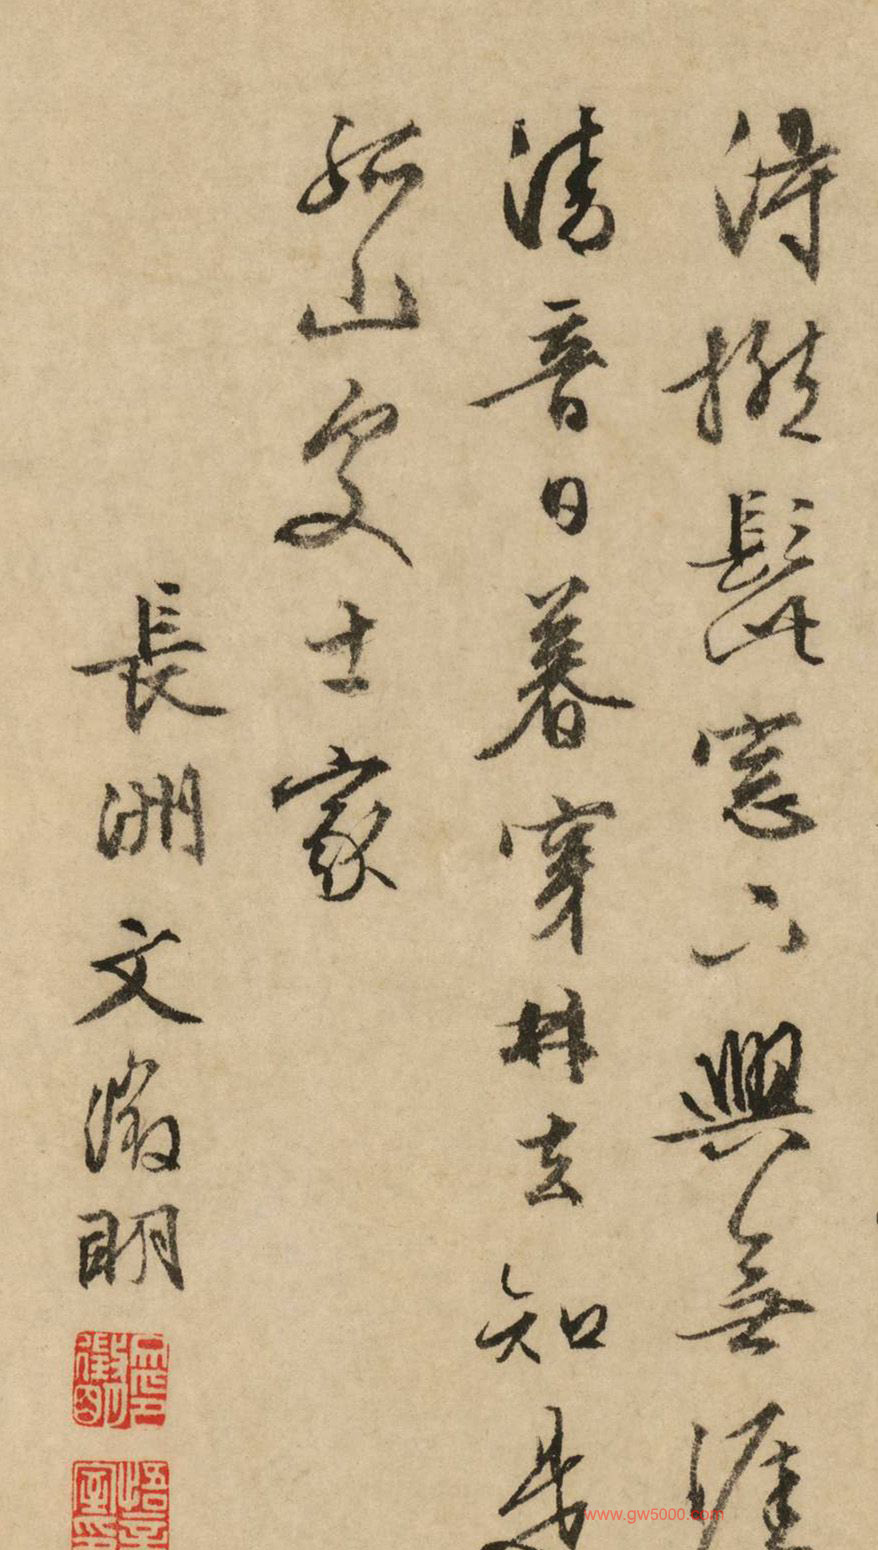 得撚髭窓下興無涯
清音日暮穿林去知是
孤山處士家
長洲文徵明
www.gw5000.com